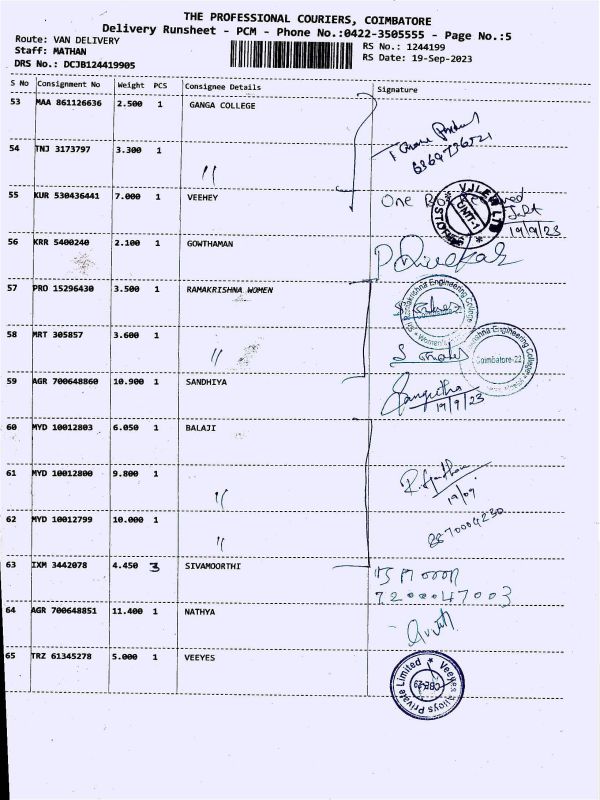 THE PROFESSIONAL COURIERS, COIMBATORE
Delivery Runsheet - PCM - Phone No.:0422-3505555 - Page No.:5
Route: VAN DELIVERY
RS No.: 1244199
Staff: MATHAN
RS Date: 19-Sep-2023
DRS No.: DCJB124419905
S No Consignment No Weight PCS Consignee Details Signature
53 MAA 861126636 2.500 1 GANGA COLLEGE
54 TNJ 3173797 3.300 1 〃
55 KUR 530436441 7.000 1 VEEHEY One Box Received
UNIT-1
19/9/23
56 KRR 5400240 2.100 1 GOWTHAMAN
57 PRO 15296430 3.500 1 RAMAKRISHNA WOMEN
Coimbatore-22
58 MRT 305857 3.600 1 〃
Coimbatore-22
59 AGR 700648860 10.900 1 SANDHIYA Sangitha
19/9/23
60 MYD 10012803 6.050 1 BALAJI
61 MYD 10012800 9.800 1 〃
19/09
62 MYD 10012799 10.000 1 〃 8870004230
63 IXM 3442078 4.450 3 SIVAMOORTHI
7200047003
64 AGR 700648851 11.400 1 NATHYA
65 TRZ 61345278 5.000 1 VEEYES